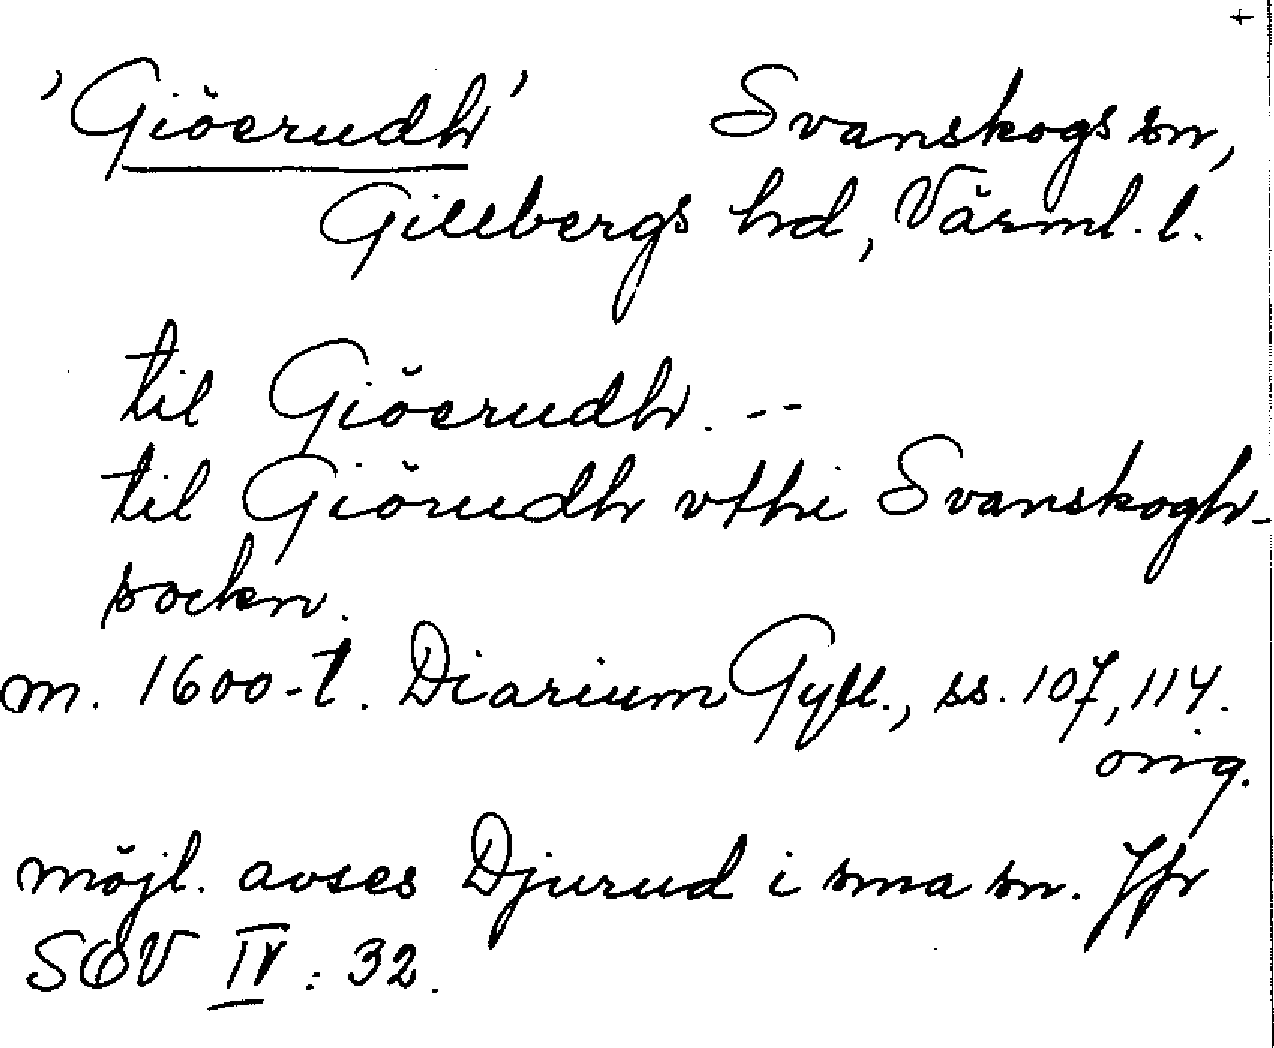 +
'Giöerudh' Svanskogs sn,
Gillbergs hd, Värml. l.
til Giöerudh. --
til Giörudh vthi Svanskogh-
sockn.
m. 1600-t. Diarium Gyll., ss. 107, 114.
orig.
möjl. avses Djurud i sma sn. Jfr
SOV IV: 32.